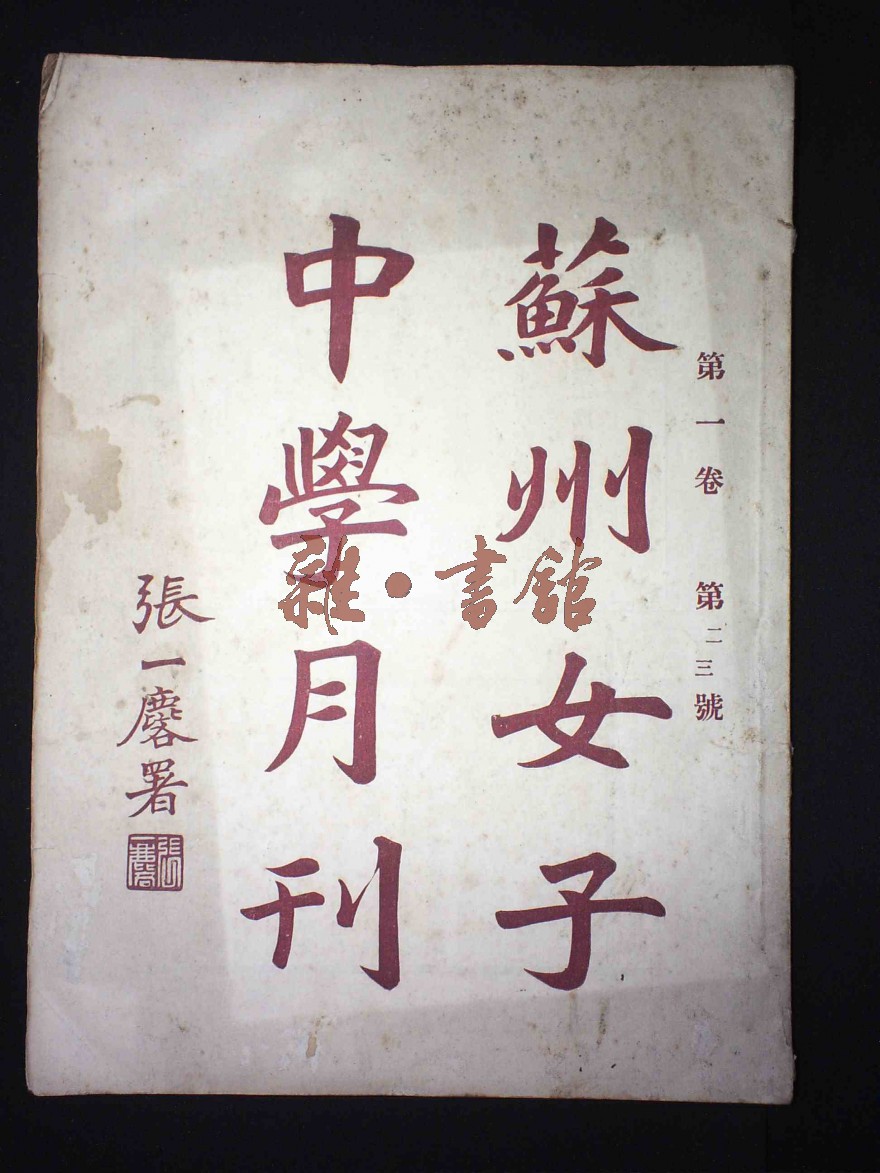 第一卷 第二三號
蘇州女子
中學月刊
張一麐署
張一麐
雜·書館